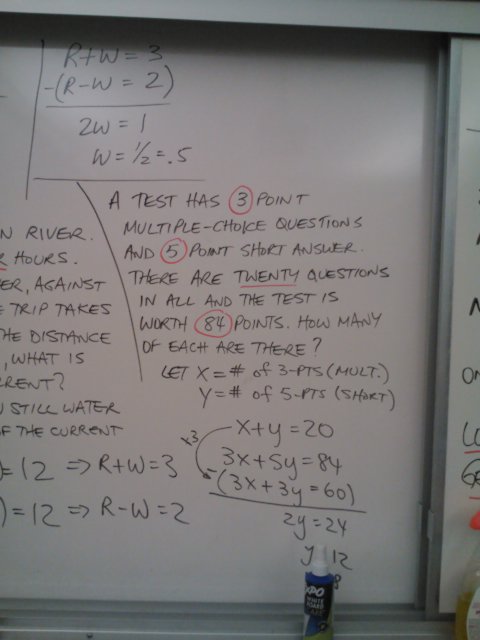 R+W = 3
-(R-W = 2)
2W = 1
W = 1/2 = .5
A TEST HAS 3 POINT
MULTIPLE-CHOICE QUESTIONS
AND 5 POINT SHORT ANSWER.
THERE ARE TWENTY QUESTIONS
IN ALL AND THE TEST IS
WORTH 84 POINTS. HOW MANY
OF EACH ARE THERE?
LET X = # of 3-PTS (MULT.)
Y = # of 5-PTS (SHORT)
x+y = 20
x3
3x+5y = 84
-(3x+3y = 60)
2y = 24
y 12
N RIVER.
HOURS.
ER, AGAINST
TRIP TAKES
THE DISTANCE
, WHAT IS
RENT?
STILL WATER
OF THE CURRENT
)= 12 ⇒ R+W = 3
) = 12 ⇒ R-W = 2
EXPO